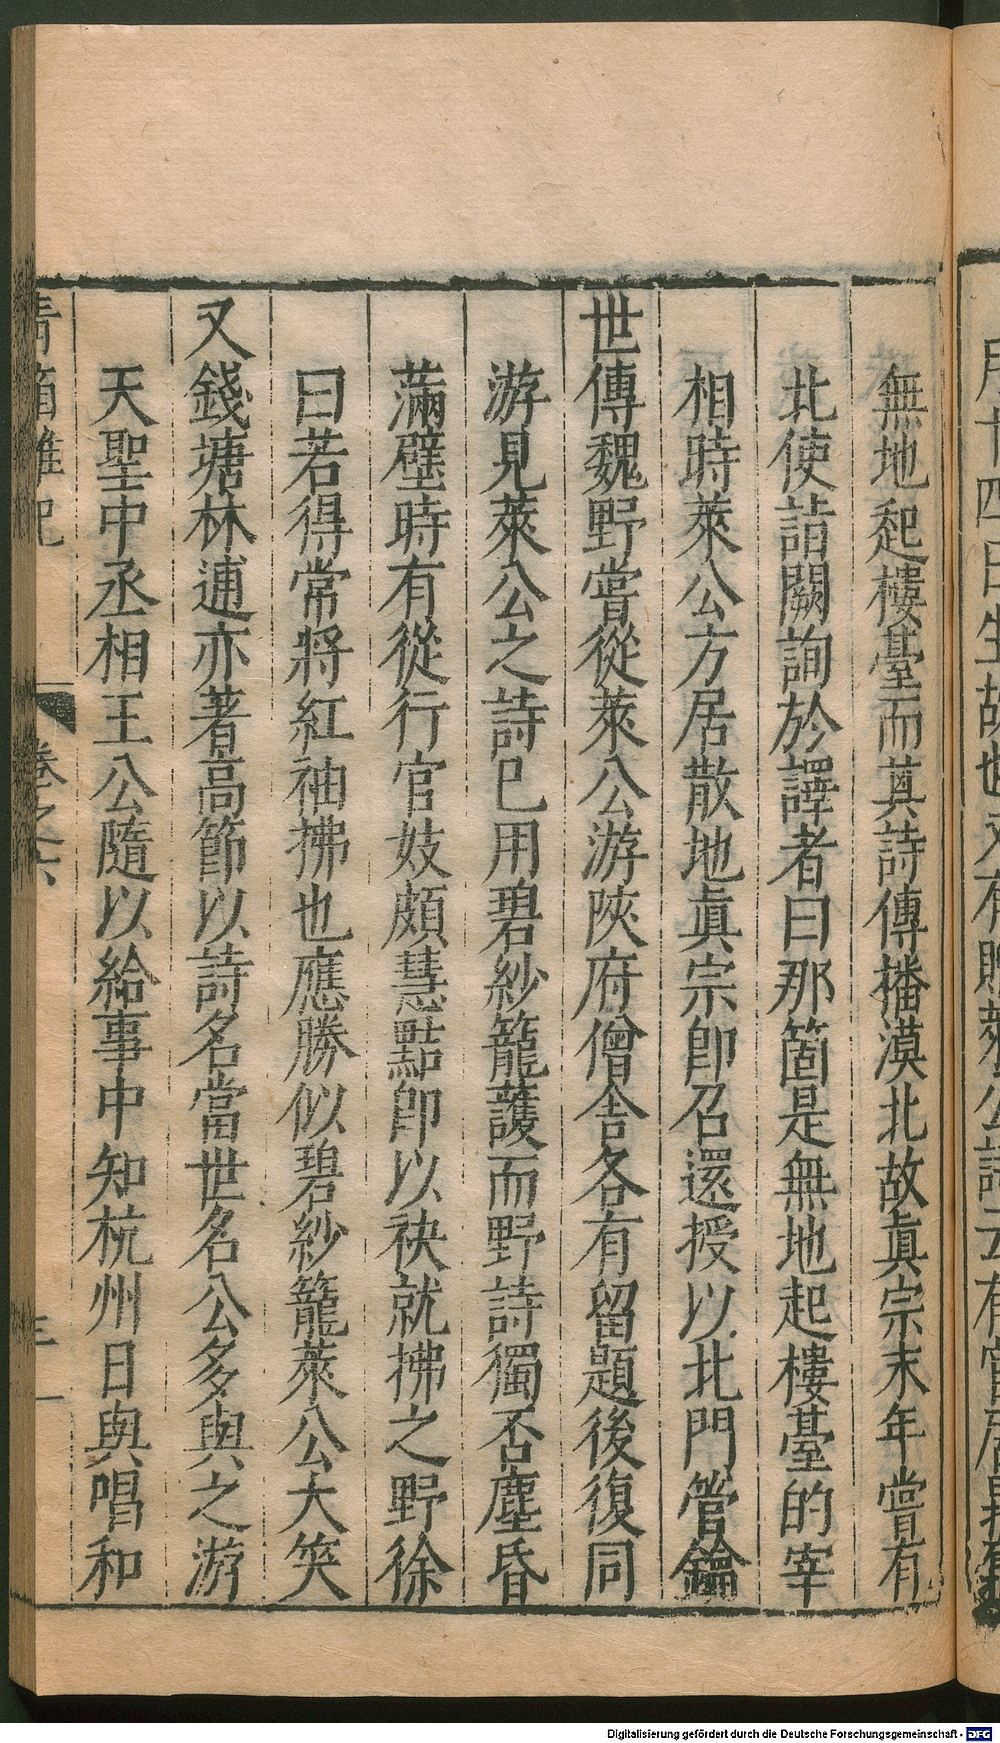 無地起樓臺而其詩傳播漠北故眞宗末年嘗有
北使詣闕詢於譯者曰那箇是無地起樓臺的宰
相時萊公方居散地眞宗卽召還授以北門管鑰
世傳魏野嘗從萊公游陝府僧舍各有留題後復同
游見萊公之詩已用碧紗籠護而野詩獨否塵昏
滿壁時有從行官妓頗慧黠卽以袂就拂之野徐
曰若得常將紅袖拂也應勝似碧紗籠萊公大笑
又錢塘林逋亦著高節以詩名當世名公多與之游
天聖中丞相王公隨以給事中知杭州日與唱和
青箱雜記 卷之六 三
Digitalisierung gefördert durch die Deutsche Forschungsgemeinschaft - DFG